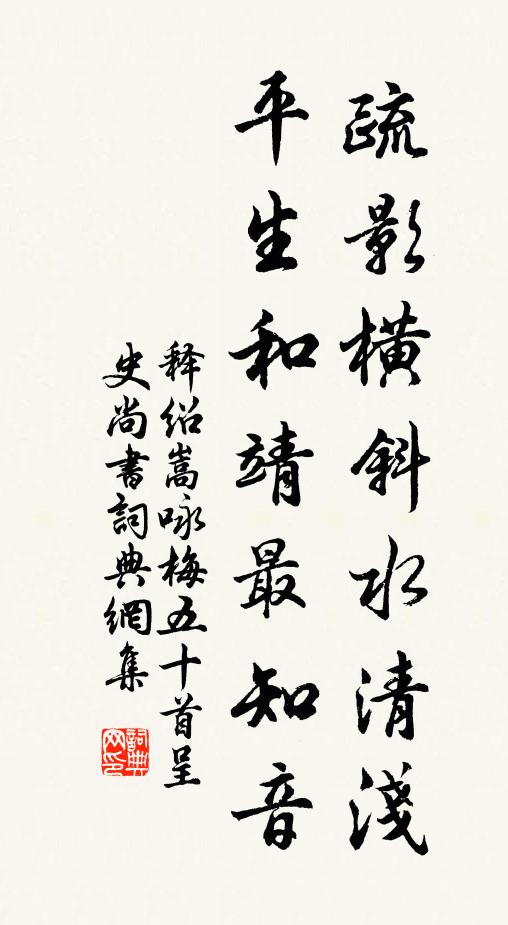 疏影橫斜水清淺
平生和靖最知音
释绍嵩咏梅五十首呈
史尚書詞典網集
詞典
网印